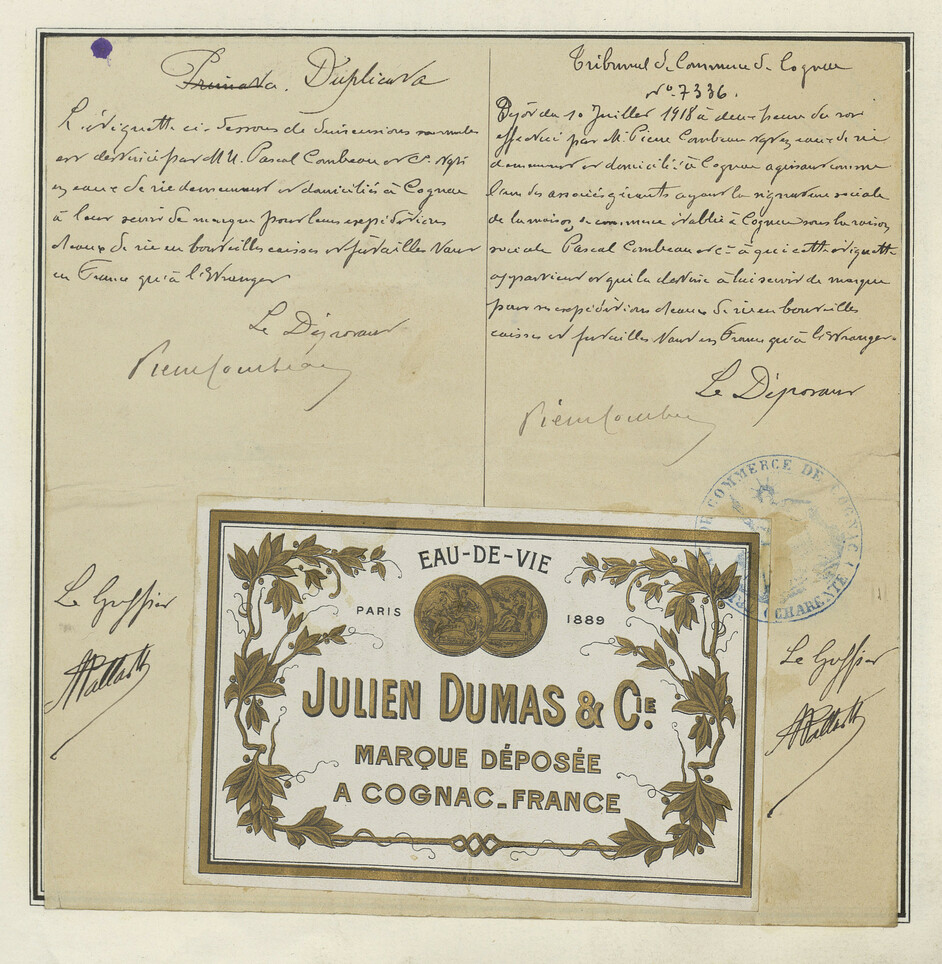 Primata. Duplicata
L'étiquette ci-dessous de dimensions normales
est destinée par M.M. Pascal Combeau et Cie Ngts
en eaux-de-vie demeurant et domiciliés à Cognac
à leur servir de marque pour leurs expéditions
d'eaux-de-vie en bouteilles caisses et futailles tant
en France qu'à l'étranger
Le Déposant
Pierre Combeau
Tribunal de Commerce de Cognac
No. 7336.
Dépôt du 10 Juillet 1918 à deux heures du soir
effectué par M. Pierre Combeau Ngt en eaux-de-vie
demeurant et domicilié à Cognac agissant comme
l'un des associés gérants ayant la signature sociale
de la maison de commerce établie à Cognac sous la raison
sociale Pascal Combeau et Cie à qui cette étiquette
appartient et qui la destine à lui servir de marque
pour ses expéditions d'eaux-de-vie en bouteilles
caisses et futailles tant en France qu'à l'étranger.
Le Déposant
Pierre Combeau
COMMERCE DE COGNAC
(CHARENTE)
Le Greffier
Le Greffier
EAU-DE-VIE
PARIS 1889
JULIEN DUMAS & CIE.
MARQUE DÉPOSÉE
A COGNAC-FRANCE